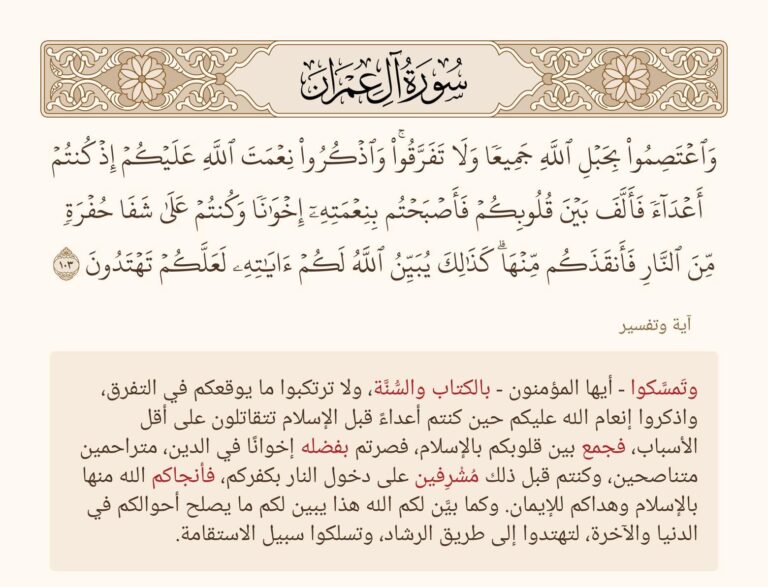 سُورَةُ آلِ عِمْرَانَ
وَٱعْتَصِمُواْ بِحَبْلِ ٱللَّهِ جَمِيعًا وَلَا تَفَرَّقُواْۚ وَٱذْكُرُواْ نِعْمَتَ ٱللَّهِ عَلَيْكُمْ إِذْ كُنتُمْ
أَعْدَآءً فَأَلَّفَ بَيْنَ قُلُوبِكُمْ فَأَصْبَحْتُم بِنِعْمَتِهِۦٓ إِخْوَٰنًا وَكُنتُمْ عَلَىٰ شَفَا حُفْرَةٍ
مِّنَ ٱلنَّارِ فَأَنقَذَكُم مِّنْهَاۗ كَذَٰلِكَ يُبَيِّنُ ٱللَّهُ لَكُمْ ءَايَٰتِهِۦ لَعَلَّكُمْ تَهْتَدُونَ ١٠٣
آية وتفسير
وتَمسَّكوا - أيها المؤمنون - بالكتاب والسُّنَّة، ولا ترتكبوا ما يوقعكم في التفرق،
واذكروا إنعام الله عليكم حين كنتم أعداءً قبل الإسلام تتقاتلون على أقل
الأسباب، فجمع بين قلوبكم بالإسلام، فصرتم بفضله إخوانًا في الدين، متراحمين
متناصحين، وكنتم قبل ذلك مُشْرِفين على دخول النار بكفركم، فأنجاكم الله منها
بالإسلام وهداكم للإيمان. وكما بيَّن لكم الله هذا يبين لكم ما يصلح أحوالكم في
الدنيا والآخرة، لتهتدوا إلى طريق الرشاد، وتسلكوا سبيل الاستقامة.